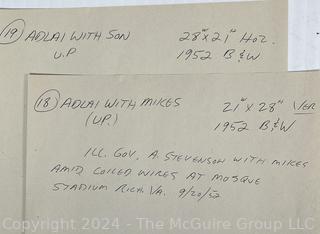 19 ADLAI WITH SON 28" X 21" HOZ.
U.P 1952 B&W
18 ADLAI WITH MIKES 21" X 28" VER
(UP.) 1952 B&W
ILL. GOV. A. STEVENSON WITH MIKES
AMID COILED WIRES AT MOSQUE
STADIUM RICH. VA. 9/20/52
Copyright 2024 - The McGuire Group LLC